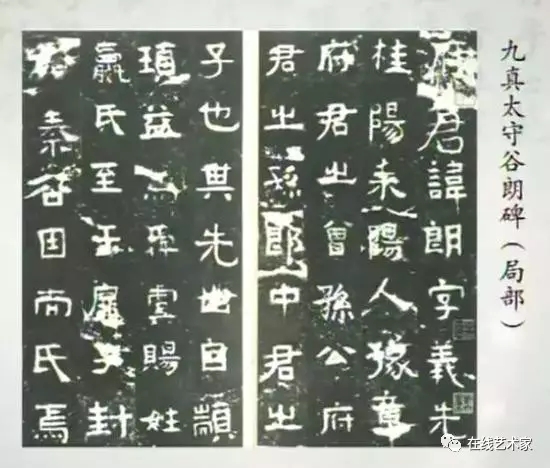 九真太守谷朗碑（局部）
府君諱朗字義先
桂陽耒陽人豫章
府君之曾孫公府
君之孫郎中君之
子也其先世自顓
頊益為舜虞賜姓
嬴氏至于扉子封
秦谷因而氏焉
在线艺术家